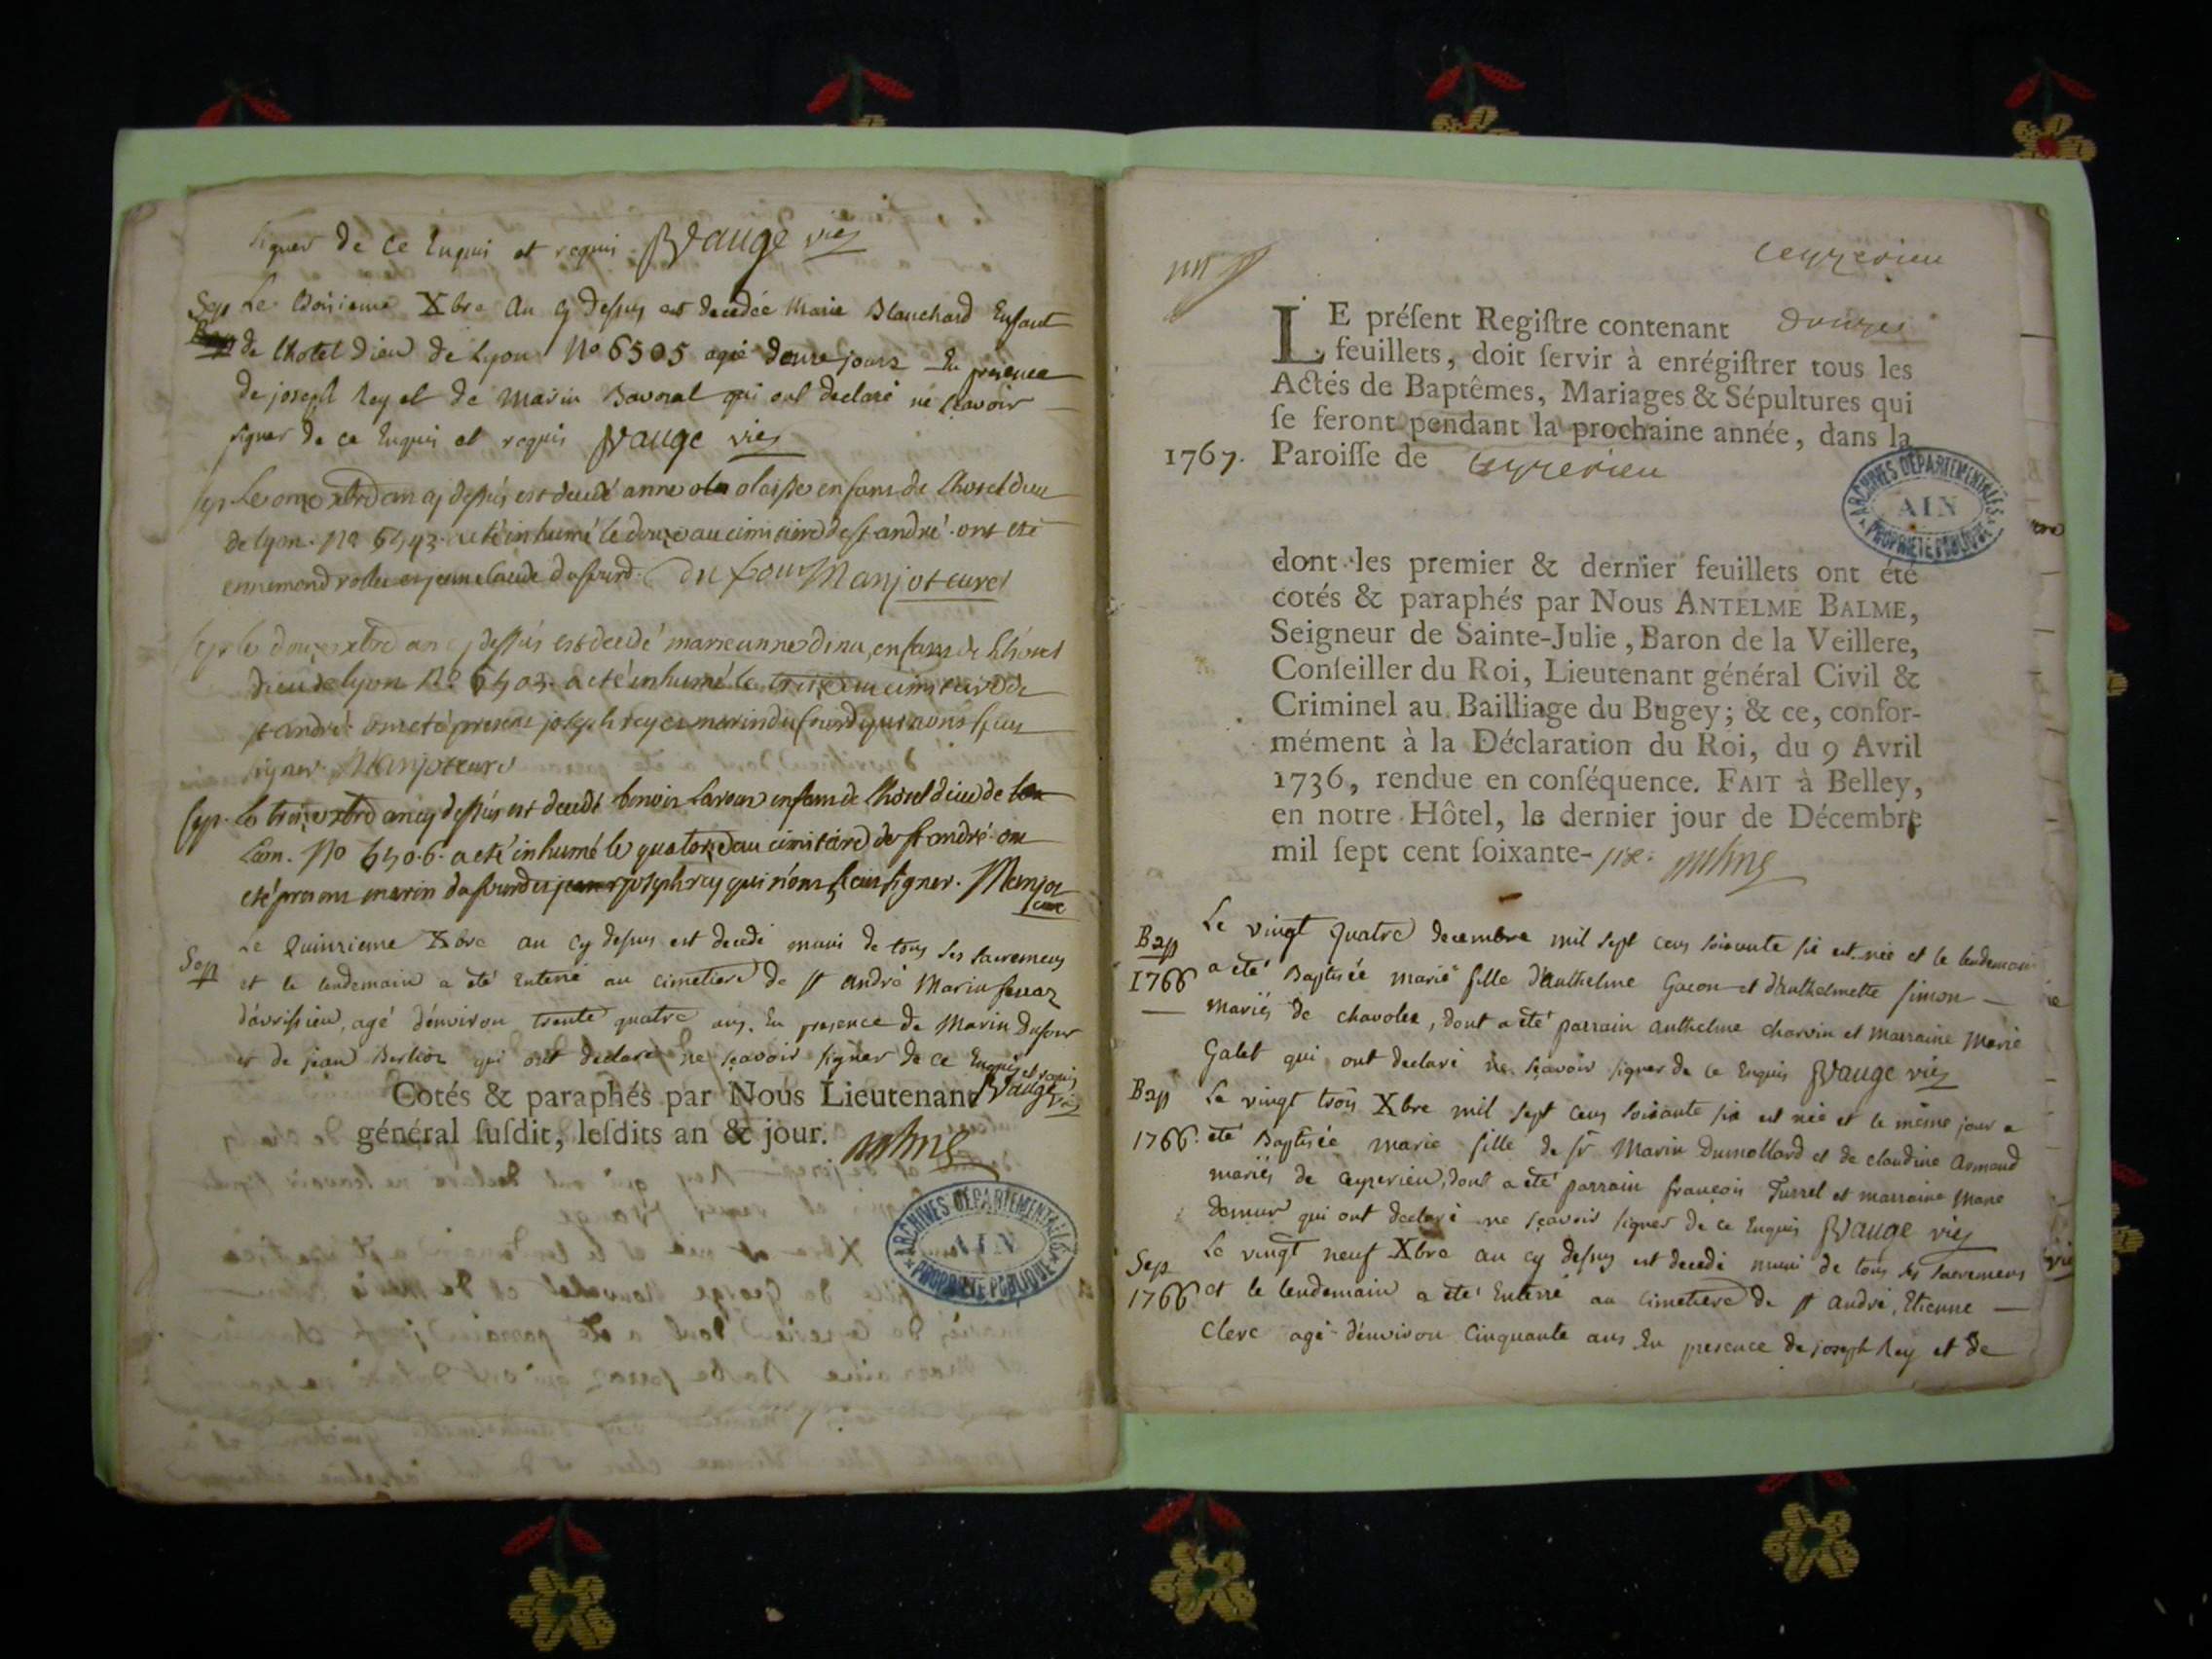 signer de ce Enquis et requis JJVauge vic
Sep Le Xbre au cy dessus est decedée Marie Blanchard Enfant
de lhotel dieu de Lyon No 6505 agée jours En presence
de joseph Rey et de Marin qui ont declaré ne sçavoir
signer de ce Enquis et requis JJVauge vic
Sep Le onze xbre an cy dessus est decedé anne enfans de lhotel dieu
de lyon. No a eté inhumé le douze au cimitiere de st andré. ont eté
ennemond et jean claude dufourd. du four Manjot curé
Sep le douze xbre an cy dessus est decedé marie anne enfans de lhotel
dieu de lyon No 6503. a eté inhumé le treize au cimitiere de
st andré. ont eté presens joseph rey et marin dufourd qui n'ont sceu
signer. Manjot curé
Sep. le treize xbre an cy dessus est decedé benoit enfans de lhotel dieu de
Lion. No 6506. a eté inhumé le quatorze au cimitiere de st andré. ont
eté presens marin dufourd et joseph rey qui n'ont sceu signer. Manjot
curé
Sep Le Quinzieme Xbre au cy dessus est decedé muni de tous ses sacremens
et le lendemain a eté Enterré au cimetiere de st andré Marin
d'avrissieu, agé d'environ trente quatre ans. En presence de Marin Dufour
et de jean Berlioz qui ont declaré ne sçavoir signer de ce Enquis et requis
JJVauge vic
Cotés & paraphés par Nous Lieutenant
général susdit, lesdits an & jour.
ARCHIVES DÉPARTEMENTALES
AIN
PROPRIÉTÉ PUBLIQUE
Ceyzerieu
LE présent Registre contenant douze
feuillets, doit servir à enrégistrer tous les
Actes de Baptêmes, Mariages & Sépultures qui
se feront pendant la prochaine année, dans la
1767. Paroisse de Ceyzerieu
ARCHIVES DÉPARTEMENTALES
AIN
PROPRIÉTÉ PUBLIQUE
dont les premier & dernier feuillets ont été
cotés & paraphés par Nous ANTELME BALME,
Seigneur de Sainte-Julie, Baron de la Veillere,
Conseiller du Roi, Lieutenant général Civil &
Criminel au Bailliage du Bugey; & ce, confor-
mément à la Déclaration du Roi, du 9 Avril
1736, rendue en conséquence. FAIT à Belley,
en notre Hôtel, le dernier jour de Décembre
mil sept cent soixante- six.
Bap Le vingt quatre decembre mil sept cens soixante six est née et le lendemain
1766 a eté Baptisée marie fille d'anthelme Gacon et d'anthelmette simon
mariés de chavolex, dont a eté parrain anthelme charvin et marraine Marie
Galet qui ont declaré ne sçavoir signer de ce Enquis JJVauge vic
Bap Le vingt trois Xbre mil sept cens soixante six est née et le même jour a
1766. eté Baptisée marie fille de sr Marin Dumollard et de claudine armand
mariés de ceyzerieu, dont a eté parrain françois Turrel et marraine Marie
demur qui ont declaré ne sçavoir signer de ce Enquis JJVauge vic
Sep Le vingt neuf Xbre au cy dessus est decedé muni de tous ses sacremens
1766 et le lendemain a eté Enterré au cimetiere de st andré, Etienne
Clerc agé d'environ Cinquante ans En presence de joseph Rey et de